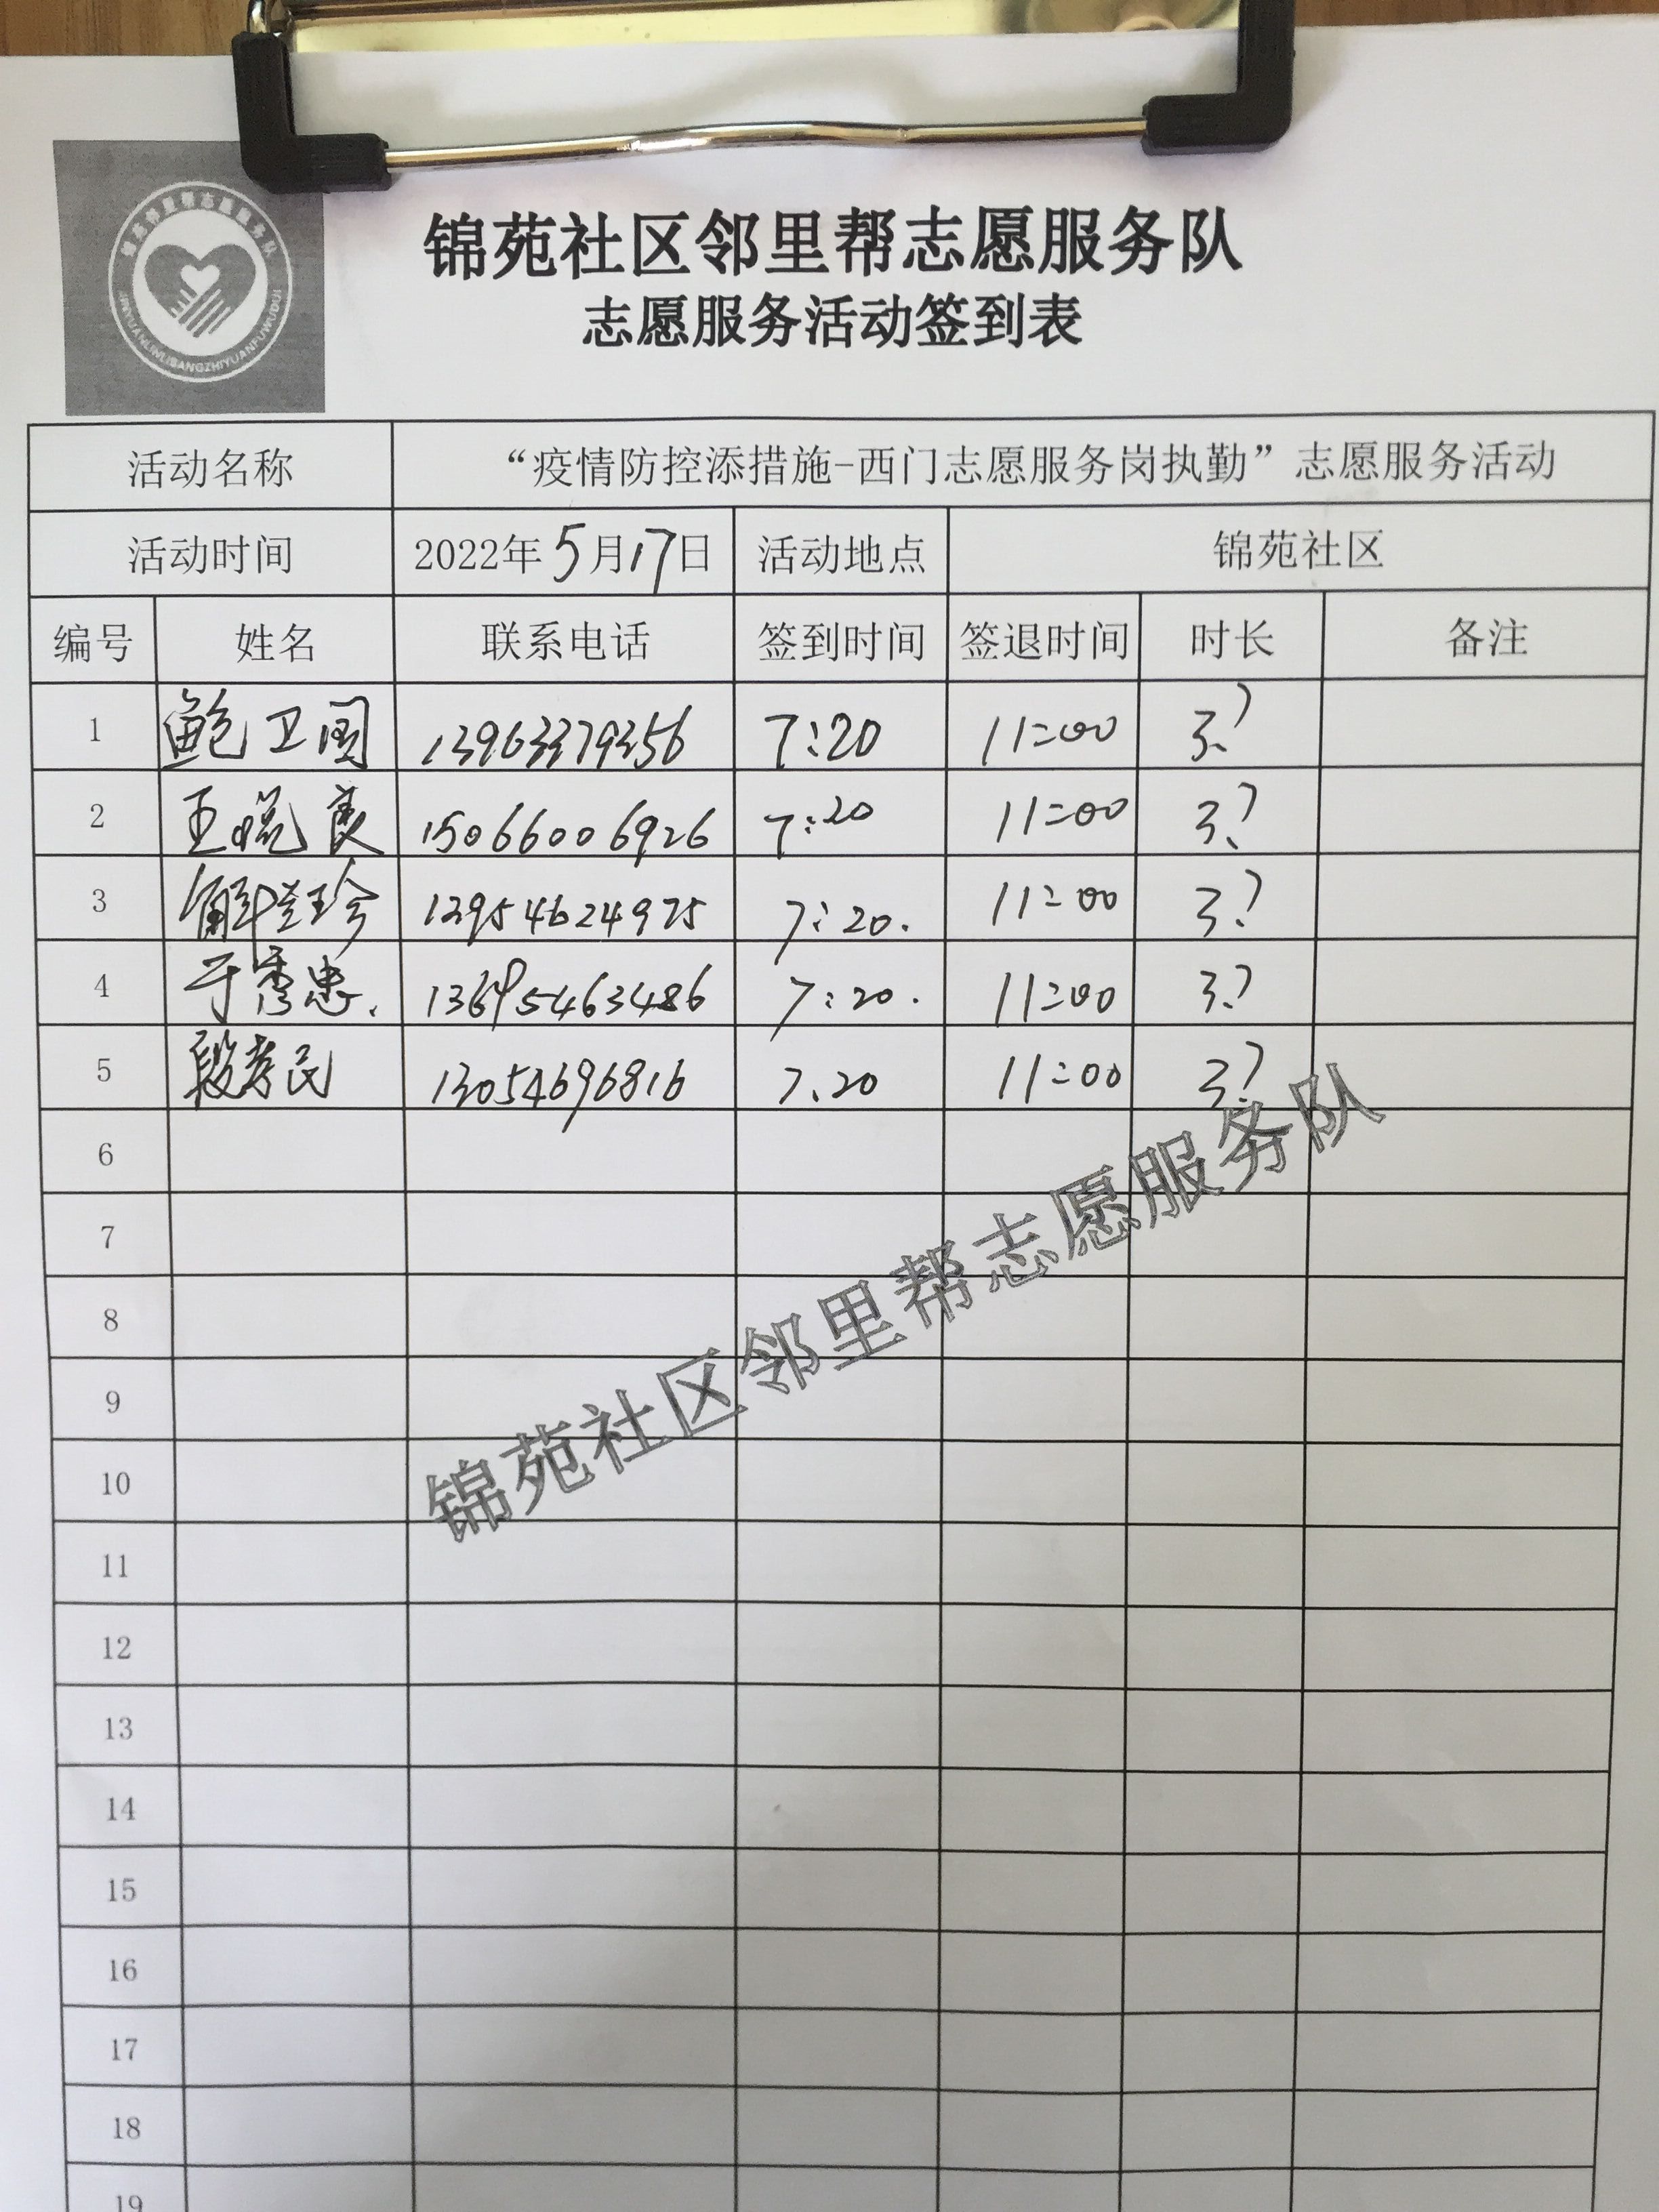 锦苑社区邻里帮志愿服务队
志愿服务活动签到表
活动名称 “疫情防控添措施-西门志愿服务岗执勤”志愿服务活动
活动时间 2022年5月17日 活动地点 锦苑社区
编号 姓名 联系电话 签到时间 签退时间 时长 备注
1 鲍卫国 13963379356 7:20 11:00 3.7
2 15066006926 7:20 11:00 3.7
3 13954624975 7:20. 11:00 3.7
4 于秀忠. 13695463486 7:20. 11:00 3.7
5 段孝民 13054696816 7.20 11:00 3.7
6
7
8
9
10
11
12
13
14
15
16
17
18
19
锦苑社区邻里帮志愿服务队